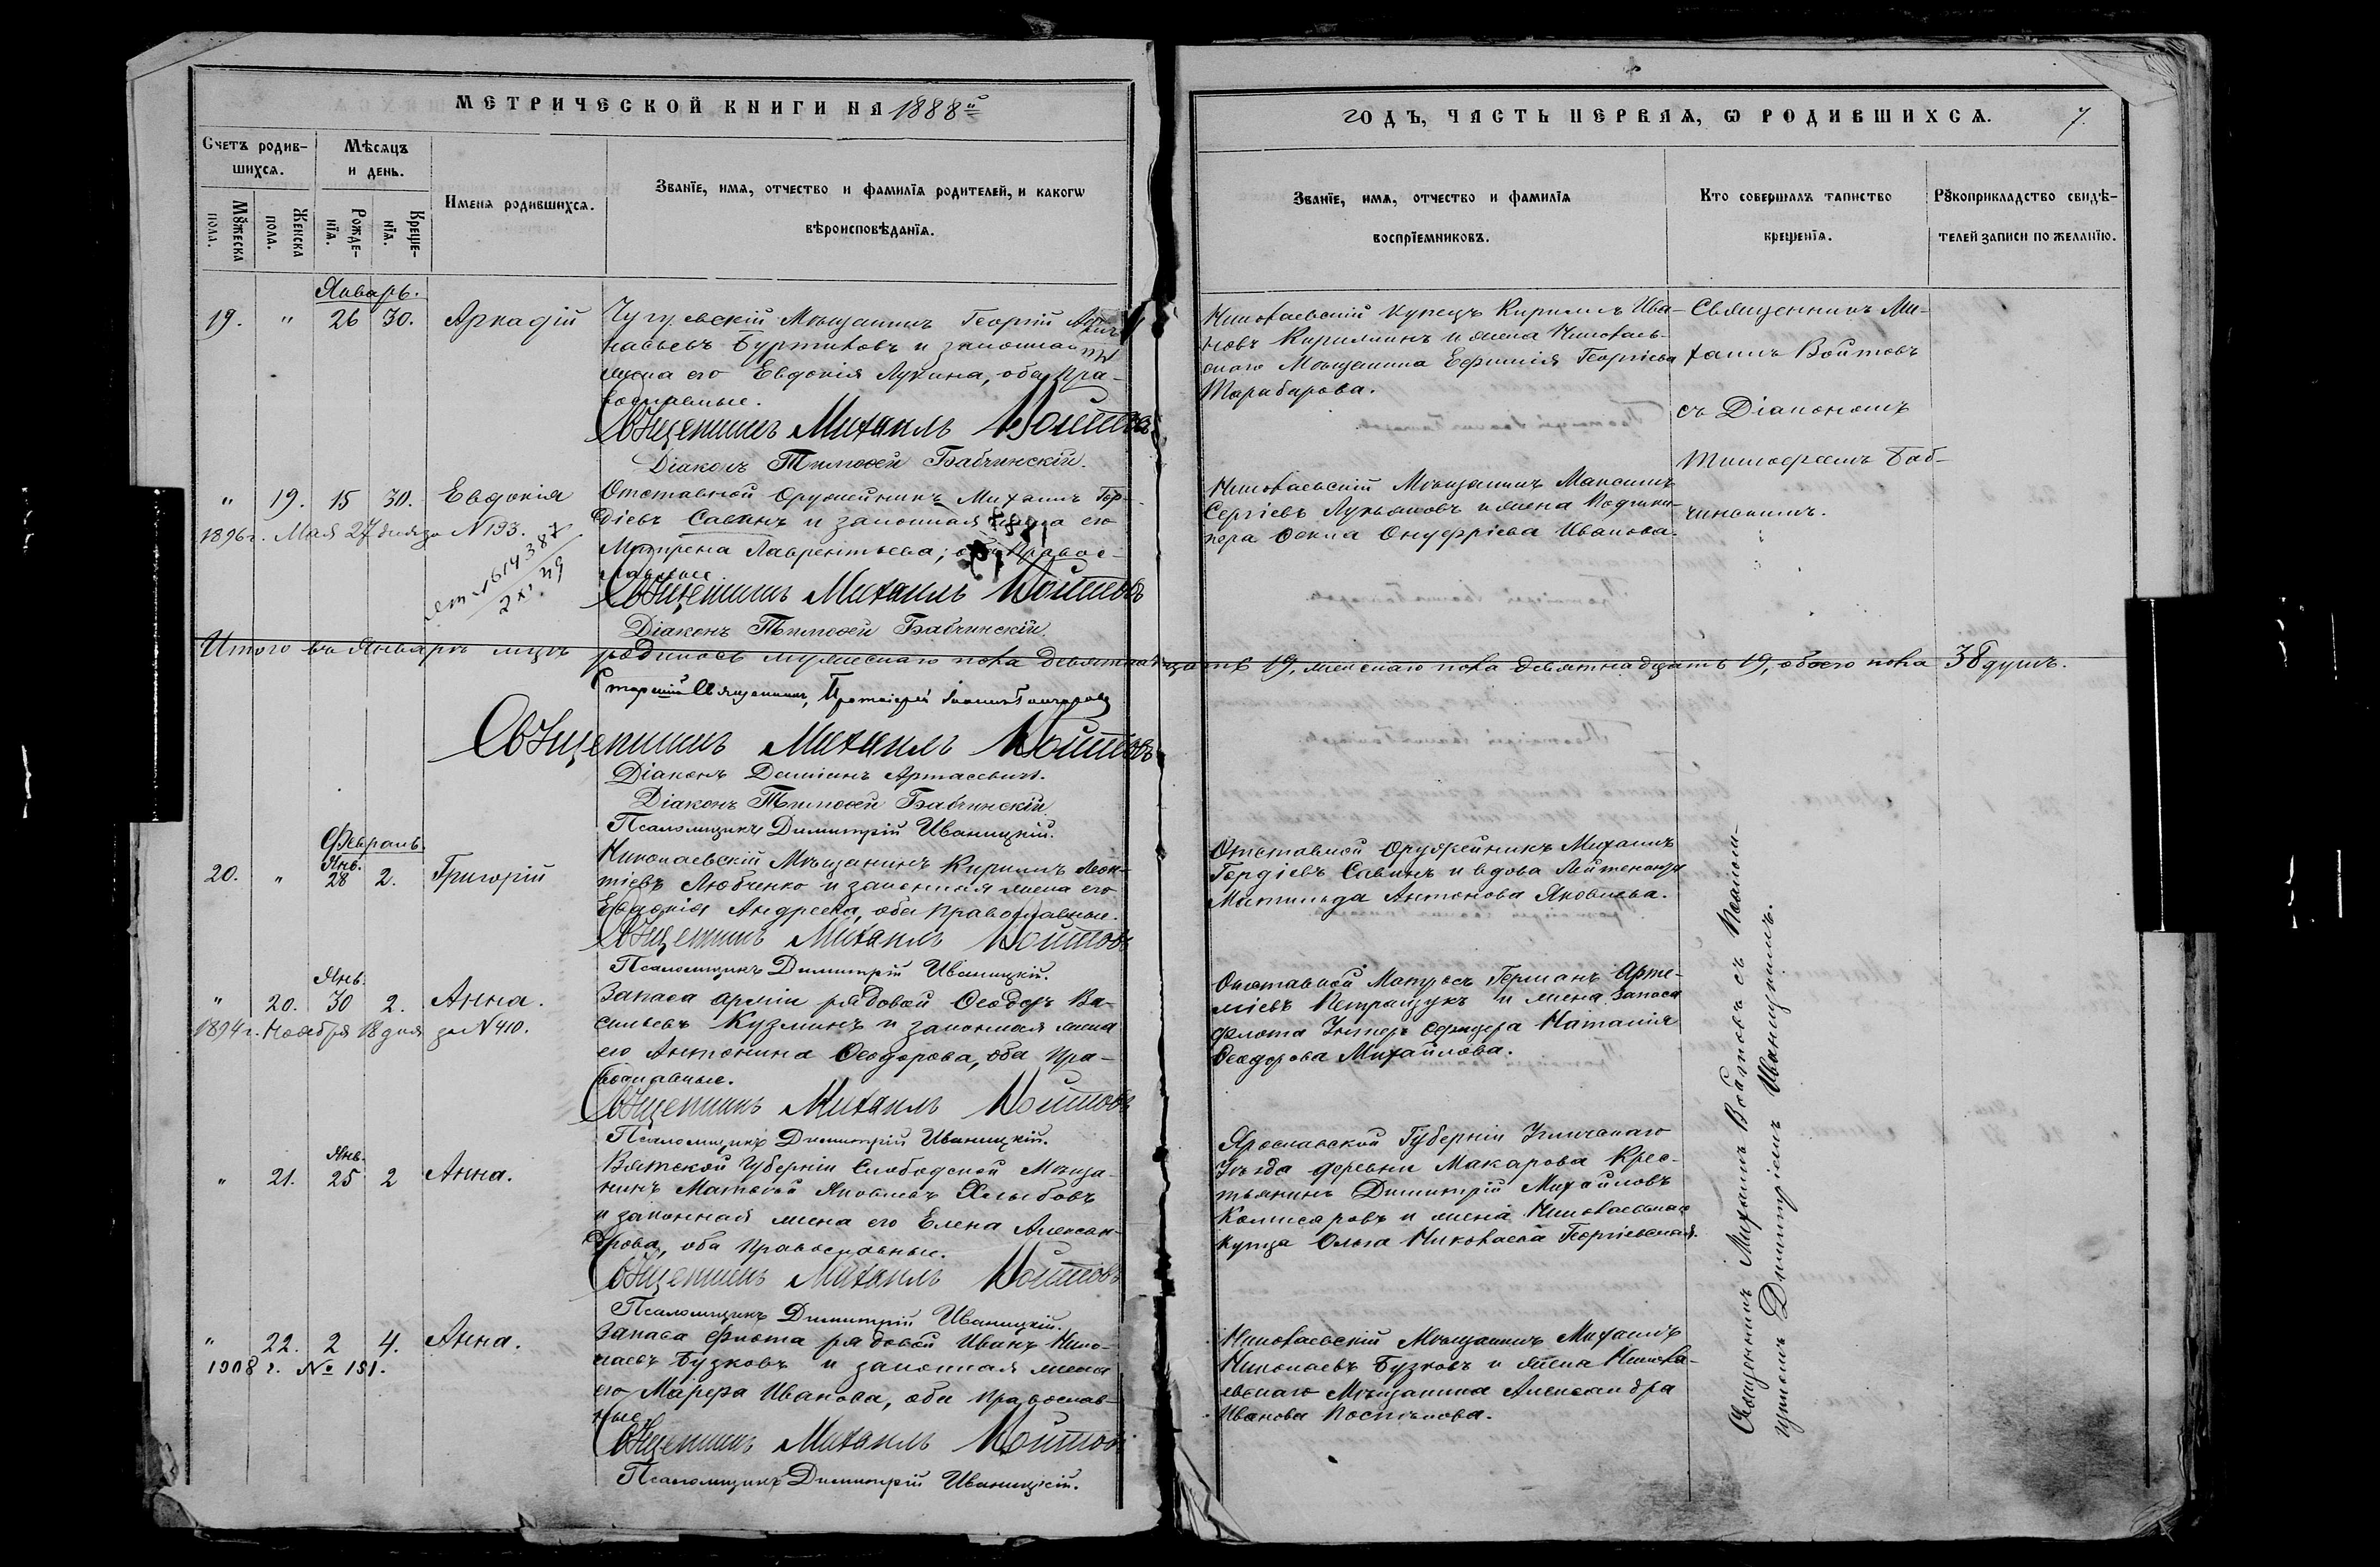 МЕТРИЧЕСКОЙ КНИГИ НА 1888й
Счетъ родив-
шихся.
Мѣсяцъ
и день.
Мужеска
пола.
Женска
пола.
Рожде-
нія.
Креще-
нія.
Имена родившихся.
Званіе, имя, отчество и фамилія родителей, и какогѡ
вѣроисповѣданія.
Январь.
19. " 26 30. Аркадій
Чугуевскій Мѣщанинъ Георгій
насьевъ Буртиковъ и законная
жена его Евдокія Лукина, оба пра-
вославные.
Священникъ Михаилъ Войтовъ
Діаконъ Тимоѳей Бабчинскій.
" 19. 15 30. Евдокія
Отставной Оружейникъ Михаилъ Гор-
діевъ Савинъ и законная жена его
Матрена Лаврентьева; оба Правос-
лавные
1896 г. Мая 27 дня за N 193.
Священникъ Михаилъ Войтовъ
Діаконъ Тимоѳей Бабчинскій.
Итого въ Январѣ мцѣ родилось мужескаго пола девятнадцать 19, женскаго пола девятнадцать 19, обоего пола 38 душъ.
Старшій Священникъ, Протоіерей Іоаннъ Гончаровъ
Священникъ Михаилъ Войтовъ
Діаконъ Даміанъ Артасевичъ.
Діаконъ Тимоѳей Бабчинскій
Псаломщикъ Димитрій Иваницкій.
Февраль.
Янв.
20. " 28 2. Григорій
Николаевскій Мѣщанинъ Кириллъ Леон-
тіевъ Любченко и законная жена его
Евдокія Андреева, оба Православные.
Священникъ Михаилъ Войтовъ
Псаломщикъ Димитрій Иваницкій.
Янв.
" 20. 30 2. Анна.
1894 г. Ноября 18 дня за N 410.
Запаса арміи рядовой Ѳеодоръ Ва-
сильевъ Кузминъ и законная жена
его Антонина Ѳеодорова, оба пра-
вославные.
Священникъ Михаилъ Войтовъ
Псаломщикъ Димитрій Иваницкій.
Янв.
" 21. 25 2 Анна.
Вятской Губерніи Слободской Мѣща-
нинъ Матвѣй Яковлевъ Хлыбовъ
и законная жена его Елена Алексан-
дрова, оба Православные.
Священникъ Михаилъ Войтовъ
Псаломщикъ Димитрій Иваницкій.
" 22. 2 4. Анна.
1908 г. № 151.
Запаса флота рядовой Иванъ Нико-
лаевъ Бузковъ и законная жена
его Марфа Иванова, оба Православ-
ные.
Священникъ Михаилъ Войтовъ
Псаломщикъ Димитрій Иваницкій.
ГОДЪ, ЧАСТЬ ПЕРВАЯ, Ѡ РОДИВШИХСЯ.
7.
Званіе, имя, отчество и фамилія
воспріемниковъ.
Кто совершалъ таинство
крещенія.
Рукоприкладство свидѣ-
телей записи по желанію.
Николаевскій купецъ Кириллъ Ива-
новъ Кирилинъ и жена Николаев-
скаго Мѣщанина Ефимія Георгіева
Тарабарова.
Священникъ Ми-
хаилъ Войтовъ
съ Діакономъ
Тимоѳеемъ Баб-
чинскимъ.
Николаевскій Мѣщанинъ Максимъ
Сергіевъ Лукьяновъ и жена
Ѳекла Онуфріева Иванова.
Отставной Оружейникъ Михаилъ
Гордіевъ Савинъ и вдова Лейтенанта
Матильда Антонова Яковлева.
Отставной Матросъ Германъ Арте-
міевъ Петращукъ и жена запаса
флота Унтеръ Офицера Наталія
Ѳеодорова Михайлова.
Ярославской Губерніи Угличскаго
Уѣзда деревни Макарова Крес-
тьянинъ Димитрій Михайловъ
Комисаровъ и жена Николаевскаго
купца Ольга Николаева Георгіевская.
Николаевскій Мѣщанинъ Михаилъ
Николаевъ Бузковъ и жена Никола-
евскаго Мѣщанина Александра
Иванова Поспѣлова.
Священникъ Михаилъ Войтовъ съ Псалом-
щикомъ Димитріемъ Иваницкимъ.